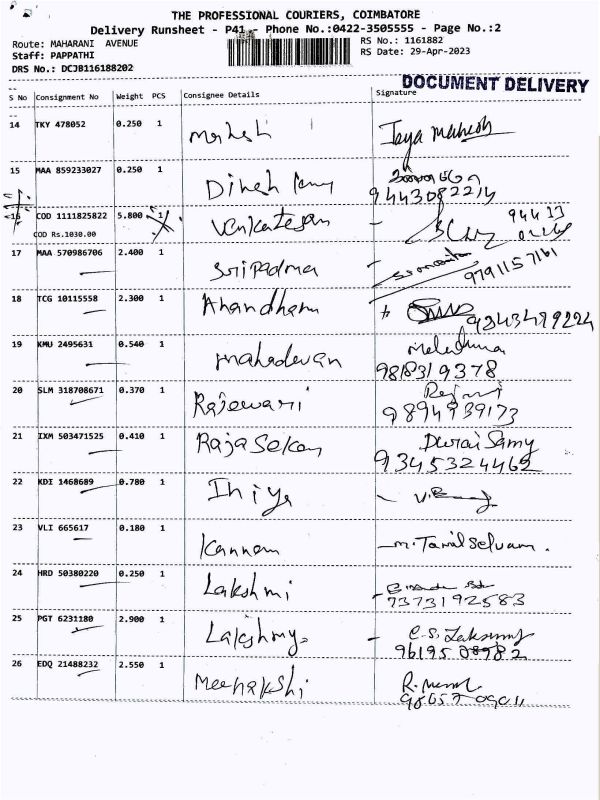 THE PROFESSIONAL COURIERS, COIMBATORE
Delivery Runsheet - P41 - Phone No.:0422-3505555 - Page No.:2
Route: MAHARANI AVENUE
RS No.: 1161882
Staff: PAPPATHI
RS Date: 29-Apr-2023
DRS No.: DCJB116188202
DOCUMENT DELIVERY
S No Consignment No Weight PCS Consignee Details Signature
14 TKY 478052 0.250 1 Mahesh Jaya Mahesh
15 MAA 859233027 0.250 1 Dinesh
9443082214
16 COD 1111825822 5.800 1 Venkatesan 94433
COD Rs.1030.00
17 MAA 570986706 2.400 1 Sripadma 9791157161
18 TCG 10115558 2.300 1 Anandham 9843499224
19 KMU 2495631 0.540 1 Mahadevan
9818319378
20 SLM 318708671 0.370 1 Rajewari
9894939173
21 IXM 503471525 0.410 1 RajaSekar Durai Samy
9345324462
22 KDI 1468689 0.780 1 Iniya
23 VLI 665617 0.180 1 Kannan m. Tamil Selvam.
24 HRD 50380220 0.250 1 Lakshmi
7373192583
25 PGT 6231180 2.900 1 C.S.
26 EDQ 21488232 2.550 1 Meenakshi